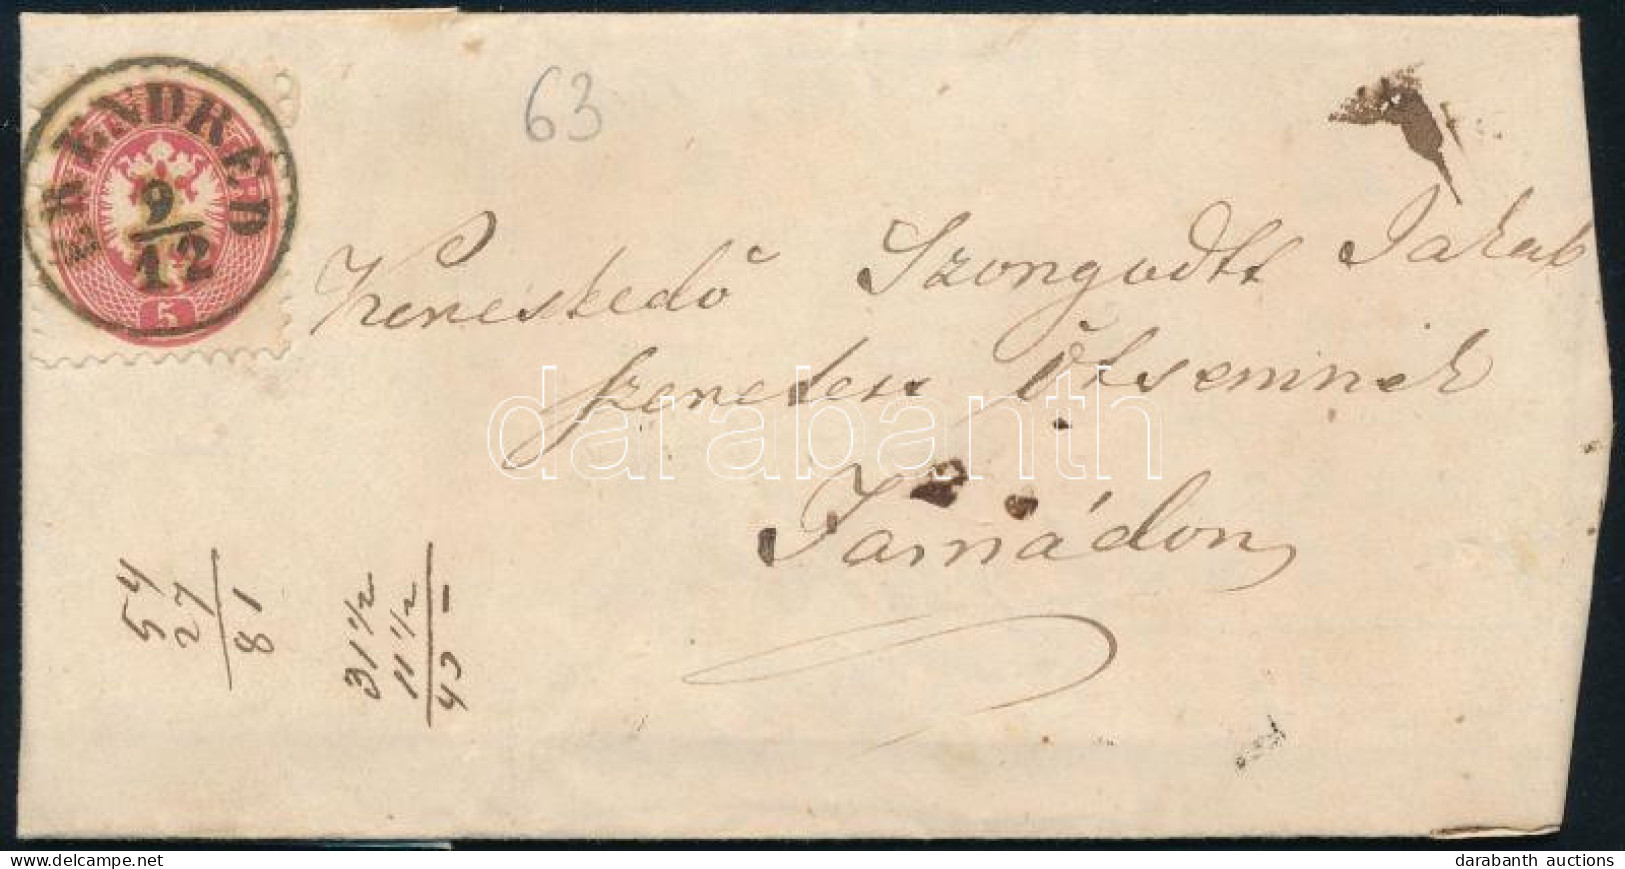 ÉR ENDRÉD
9/12
5
63
Kereskedő Szongodtt Jakab
szeretett Ötsémnek
Tarnádon
54
27
81
31 1/2
11 1/2
43 –
darabanth
delcampe.net
darabanth auctions